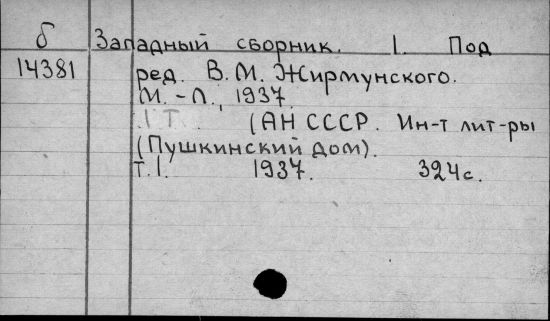 б Западный сборник. I. Под
14381 ред. В.М. Жирмунского.
М.-Л., 1937.
1 т. (АН СССР. Ин-т лит-ры
(Пушкинский дом).
Т.I. 1937. 324с.